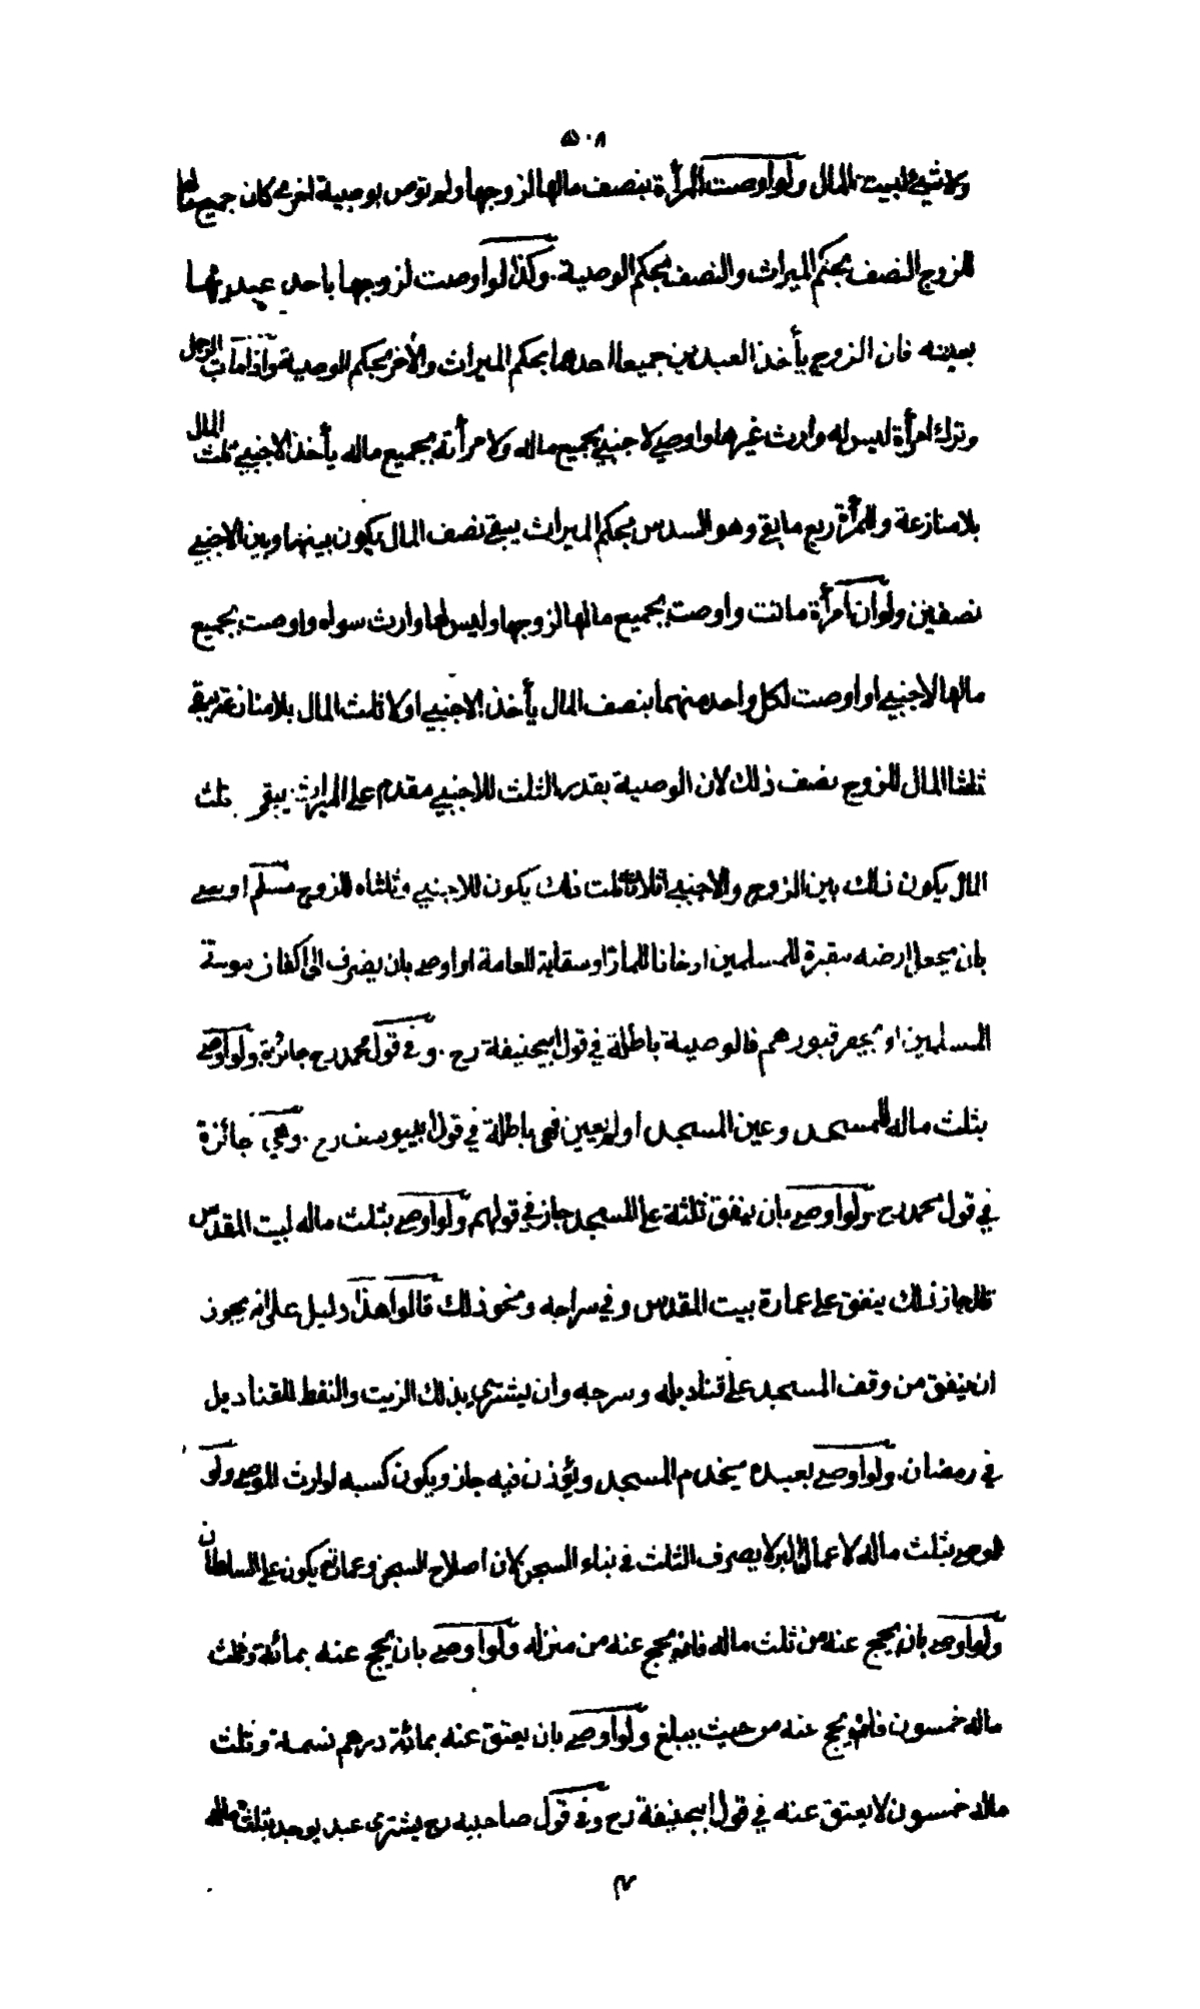 ٥٠٨
ولا شيء لبيت المال ولو اوصت المرأة بنصف مالها لزوجها ولم توص بوصية اخرى كان جميع مالها
للزوج النصف بحكم الميراث والنصف بحكم الوصية . وكذا لو اوصت لزوجها باحد عبديها
بعينه فان الزوج يأخذ العبدين جميعا احدهما بحكم الميراث والآخر بحكم الوصية واذا مات الرجل
وترك امرأة ليس له وارث غيرها واوصى لاجنبي بجميع ماله ولامرأته بجميع ماله يأخذ الاجنبي ثلث المال
بلا منازعة وللمرأة ربع ما بقي وهو السدس بحكم الميراث يبقى نصف المال يكون بينها وبين الاجنبي
نصفين ولو ان امرأة ماتت واوصت بجميع مالها لزوجها وليس لها وارث سواه واوصت بجميع
مالها لاجنبي او اوصت لكل واحد منهما بنصف المال يأخذ الاجنبي اولا ثلث المال بلا منازعة يبقى
ثلثا المال للزوج نصف ذلك لان الوصية بقدر الثلث للاجنبي مقدم على الميراث يبقى ثلث
المال يكون ذلك بين الزوج والاجنبي اثلاثا ثلث ذلك يكون للاجنبي وثلثاه للزوج مسلم اوصى
بان يجعل ارضه مقبرة للمسلمين او خانا للمارة او سقاية للعامة او اوصى بان يصرف الى اكفان موتى
المسلمين او بحفر قبورهم فالوصية باطلة في قول ابيحنيفة رح . وفي قول محمد رح جائزة ولو اوصى
بثلث ماله للمسجد وعين المسجد او لم يعين فهي باطلة في قول ابييوسف رح . وهي جائزة
في قول محمد رح ولو اوصى بان ينفق ثلثه على المسجد جاز في قولهم ولو اوصى بثلث ماله لبيت المقدس
قال جاز ذلك ينفق على عمارة بيت المقدس وفي سراجه ونحو ذلك قالوا هذا دليل على انه يجوز
ان ينفق من وقف المسجد على قناديله وسرجه وان يشترى بذلك الزيت والنفط للقناديل
في رمضان ولو اوصى بعبده يخدم المسجد ويؤذن فيه جاز ويكون كسبه لوارث الموصي ولو
اوصى بثلث ماله لاعمال البر لا يصرف الثلث في بناء السجن لان اصلاح السجن وعمارته يكون على السلطان
ولو اوصى بان يحج عنه من ثلث ماله فانه يحج عنه من منزله ولو اوصى بان يحج عنه بمائة وثلث
ماله خمسون فانه يحج عنه من حيث يبلغ ولو اوصى بان يعتق عنه بمائة درهم نسمة وثلث
ماله خمسون لا يعتق عنه في قول ابيحنيفة رح وفي قول صاحبيه رح يشترى عبد يوجد بثلث ماله